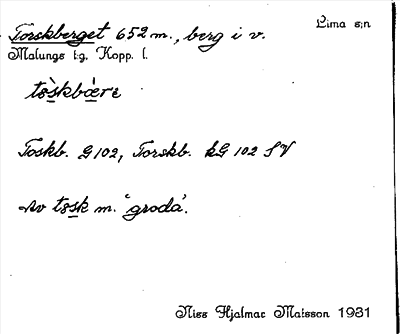 Torskberget 652 m., berg i v. Lima s:n
Malungs t:g. Kopp. l.
Toskb. G 102, Torskb. kG 102 SV
Av tosk m. 'groda'.
Niss Hjalmar Matsson 1931